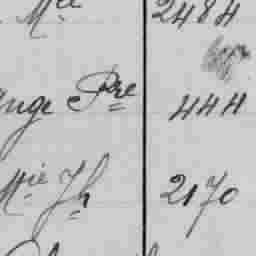 Mce 2484
ange Pre 444
Mie Jh 2170